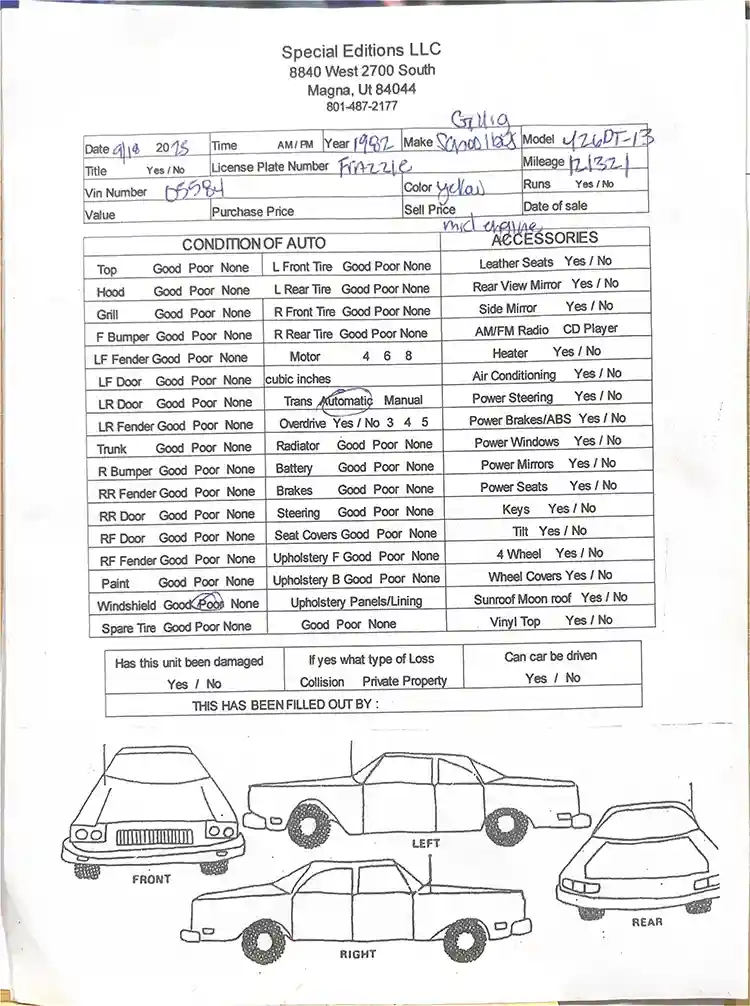 Special Editions LLC
8840 West 2700 South
Magna, Ut 84044
801-487-2177
Gillig
Date 9/18 2015 Time AM / PM Year 1982 Make School bus Model 426DT-13
Title Yes / No License Plate Number Frazzle Mileage 121321
Vin Number 05584 Color yellow Runs Yes / No
Value Purchase Price Sell Price Date of sale
mid engine
CONDITION OF AUTO ACCESSORIES
Top Good Poor None L Front Tire Good Poor None Leather Seats Yes / No
Hood Good Poor None L Rear Tire Good Poor None Rear View Mirror Yes / No
Grill Good Poor None R Front Tire Good Poor None Side Mirror Yes / No
F Bumper Good Poor None R Rear Tire Good Poor None AM/FM Radio CD Player
LF Fender Good Poor None Motor 4 6 8 Heater Yes / No
LF Door Good Poor None cubic inches Air Conditioning Yes / No
LR Door Good Poor None Trans Automatic Manual Power Steering Yes / No
LR Fender Good Poor None Overdrive Yes / No 3 4 5 Power Brakes/ABS Yes / No
Trunk Good Poor None Radiator Good Poor None Power Windows Yes / No
R Bumper Good Poor None Battery Good Poor None Power Mirrors Yes / No
RR Fender Good Poor None Brakes Good Poor None Power Seats Yes / No
RR Door Good Poor None Steering Good Poor None Keys Yes / No
RF Door Good Poor None Seat Covers Good Poor None Tilt Yes / No
RF Fender Good Poor None Upholstery F Good Poor None 4 Wheel Yes / No
Paint Good Poor None Upholstery B Good Poor None Wheel Covers Yes / No
Windshield Good Poor None Upholstery Panels/Lining Sunroof Moon roof Yes / No
Spare Tire Good Poor None Good Poor None Vinyl Top Yes / No
Has this unit been damaged If yes what type of Loss Can car be driven
Yes / No Collision Private Property Yes / No
THIS HAS BEEN FILLED OUT BY :
LEFT
FRONT
REAR
RIGHT